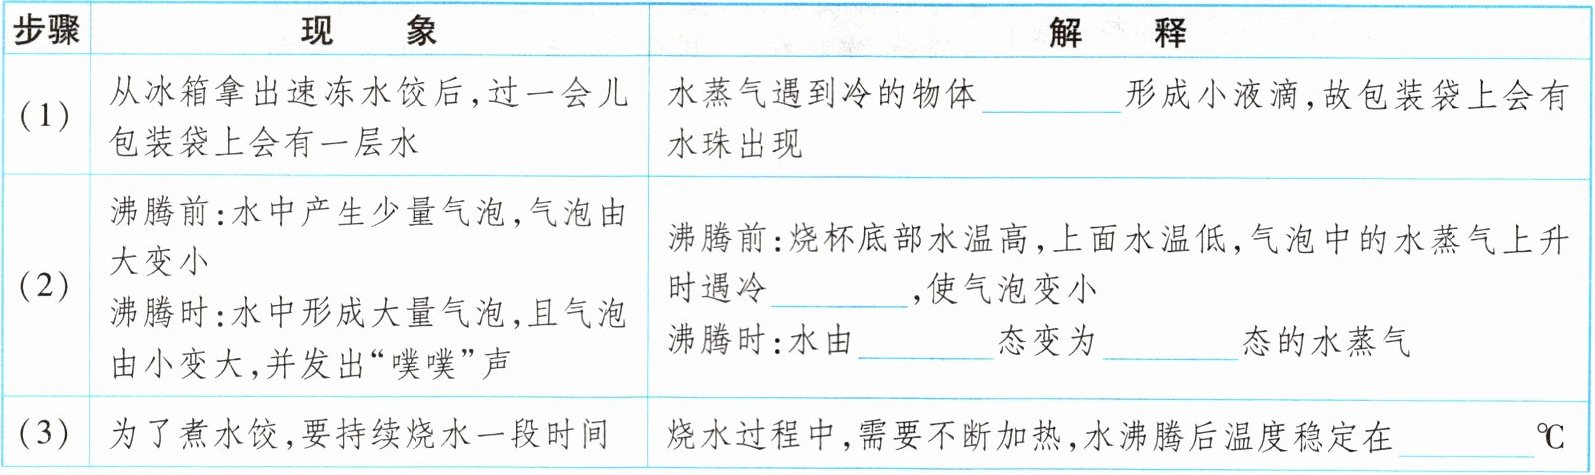 步骤 现 象 解 释
(1) 从冰箱拿出速冻水饺后,过一会儿
包装袋上会有一层水
水蒸气遇到冷的物体________形成小液滴,故包装袋上会有
水珠出现
(2) 沸腾前:水中产生少量气泡,气泡由
大变小
沸腾时:水中形成大量气泡,且气泡
由小变大,并发出“噗噗”声
沸腾前:烧杯底部水温高,上面水温低,气泡中的水蒸气上升
时遇冷________,使气泡变小
沸腾时:水由________态变为________态的水蒸气
(3) 为了煮水饺,要持续烧水一段时间
烧水过程中,需要不断加热,水沸腾后温度稳定在________℃